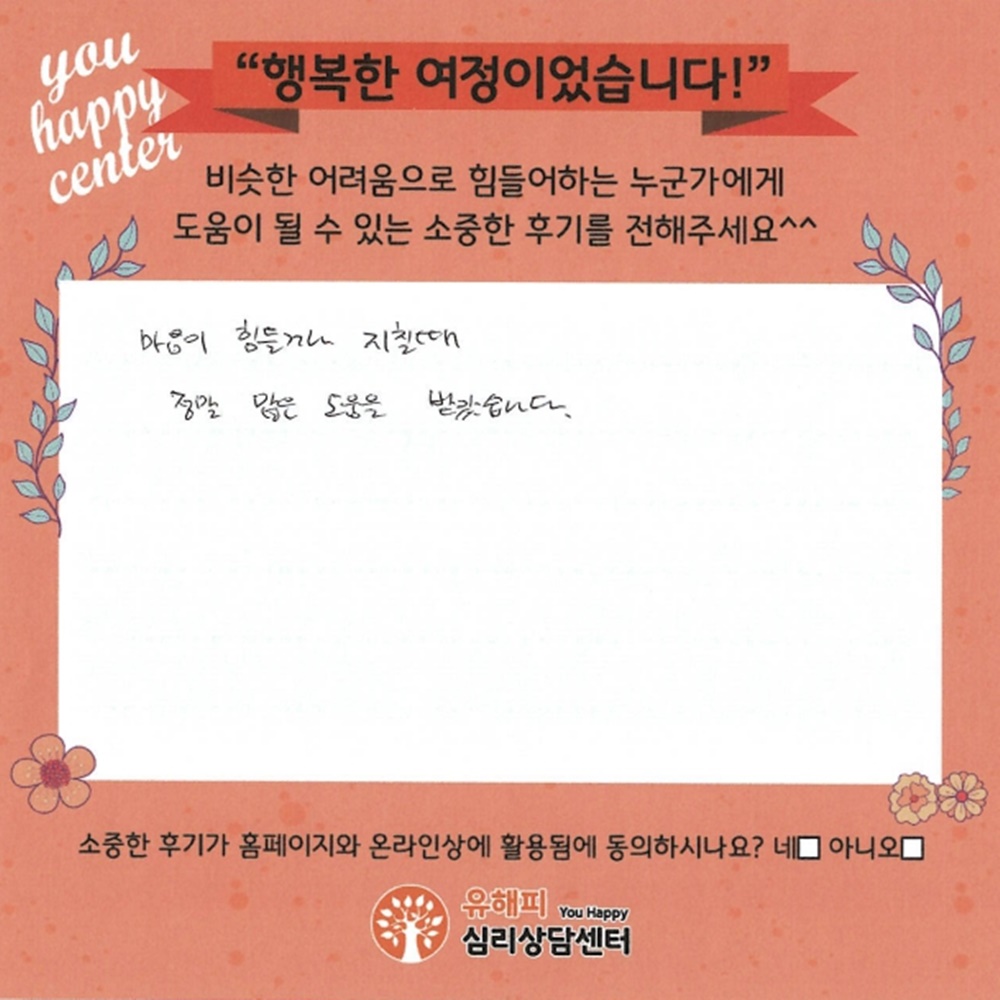 you
happy
center
“행복한 여정이었습니다!”
비슷한 어려움으로 힘들어하는 누군가에게
도움이 될 수 있는 소중한 후기를 전해주세요^^
마음이 힘들거나 지칠때
정말 많은 도움을 받았습니다.
소중한 후기가 홈페이지와 온라인상에 활용됨에 동의하시나요? 네□ 아니오□
유해피 You Happy
심리상담센터